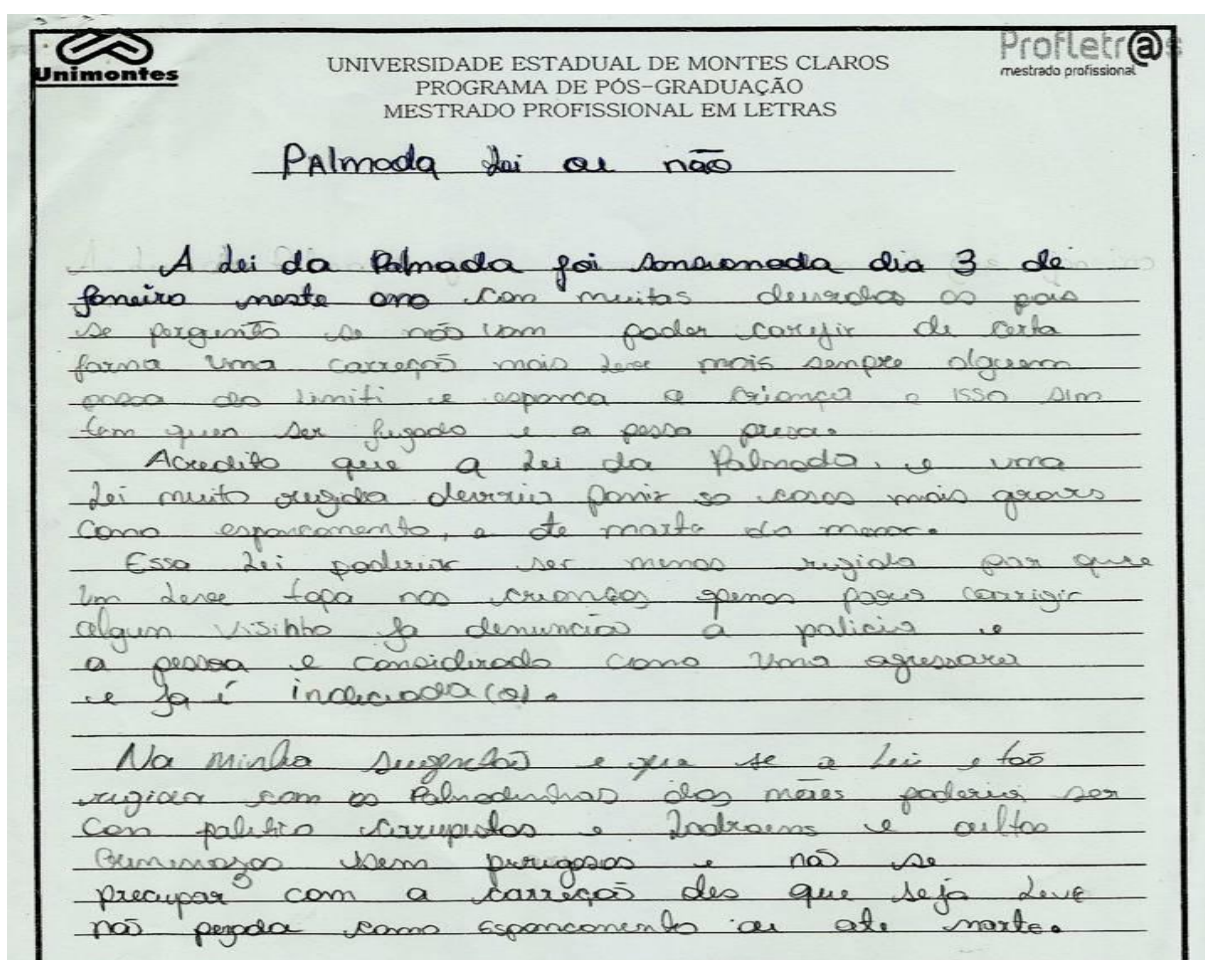 Unimontes
Profletr@s
mestrado profissional
UNIVERSIDADE ESTADUAL DE MONTES CLAROS
PROGRAMA DE PÓS-GRADUAÇÃO
MESTRADO PROFISSIONAL EM LETRAS
PAlmada Lei ou não
A Lei da Palmada foi sancionada dia 3 de
janeiro neste ano com muitas os pais
se perguntão se não vam poder corrigir de certa
forma uma correção mais leve mais sempre alguem
passa do limiti e espanca a criança e isso sim
tem quen ser jugado e a pesso presa.
Acredito que a Lei da Palmada, e uma
Lei muito rugida deveria ponir so casos mais graves
como espancamento, e ate morte do menor.
Essa Lei poderia ser menos rugida por que
um leve tapa nas crianças apenas para corrigir
algum visinho ja denuncião a policia e
a pessoa e considirado como uma agressora
e ja é indiciada(o).
Na minha sugestão e que se a Lei e tão
rugida com as Palmadinhas das mães poderia ser
con palitico corrupistos e ladroens e oultos
bem purigosos e não se
precupar com a correção des que seja leve
não pezada como espancamento ou ate morte.